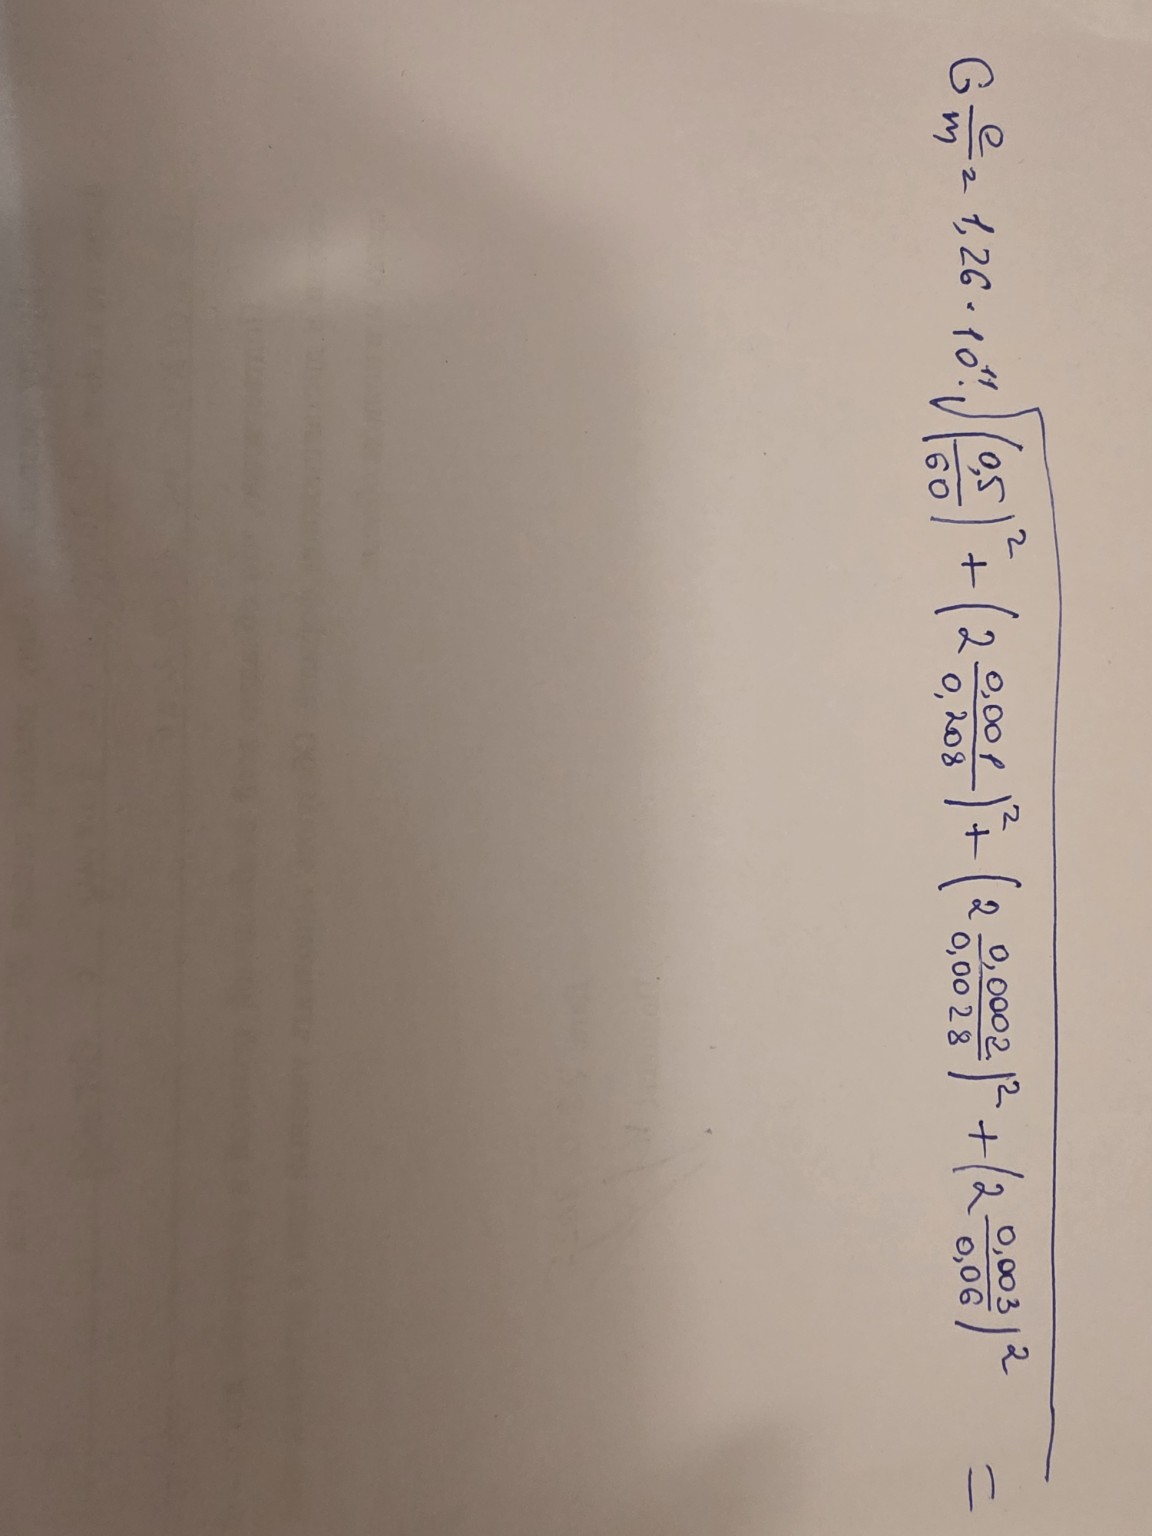 G e/m = 1,26 · 10¹¹ · √((0,5/60)² + (2 0,001/0,208)² + (2 0,0002/0,0028)² + (2 0,003/0,06)²) =